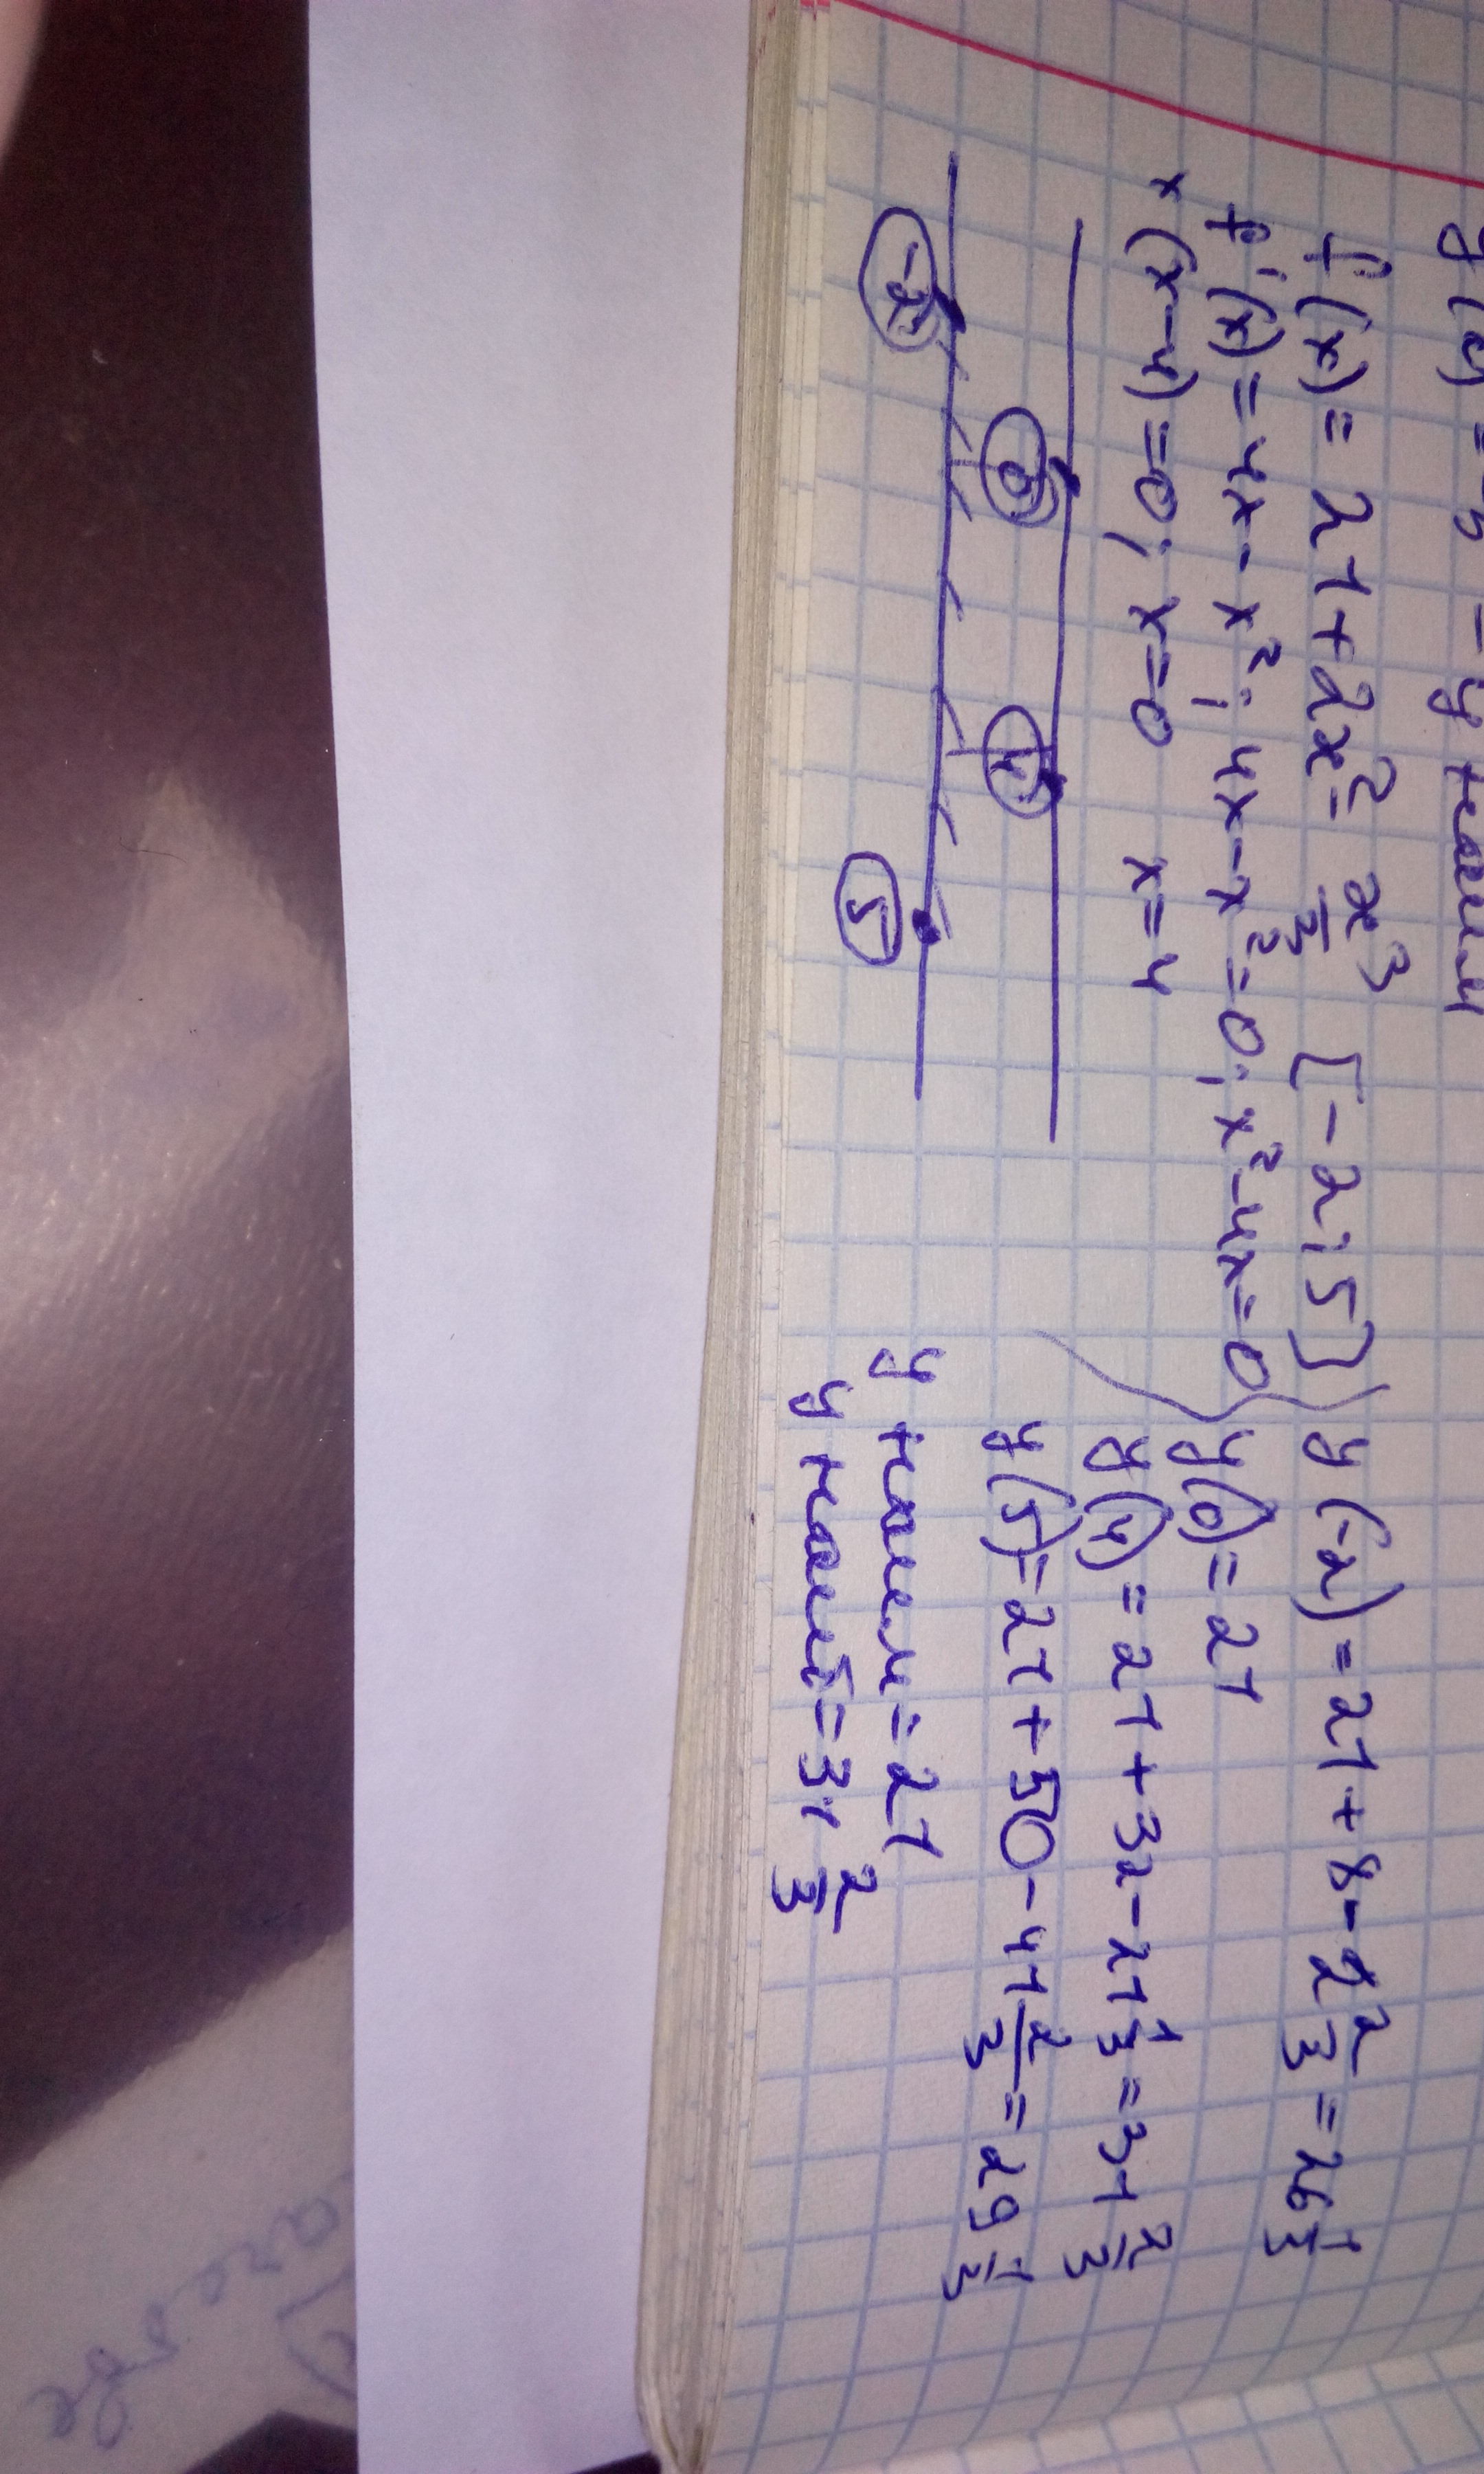 y наим
f(x) = 21+2x² - x³/3 [-2; 5]
f'(x) = 4x - x²; 4x - x² = 0; x² - 4x = 0
x(x-4) = 0; x=0 x=4
0 4
-2 5
y(-2) = 21 + 8 - 2 2/3 = 26 1/3
y(0) = 21
y(4) = 21 + 32 - 21 1/3 = 31 2/3
y(5) = 21 + 50 - 41 2/3 = 29 1/3
y наим = 21
y наиб = 31 2/3